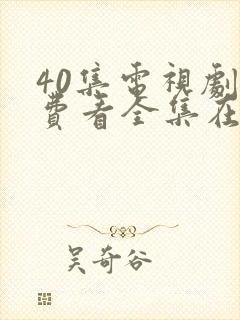 40集電視劇
費看全集在
吴奇谷